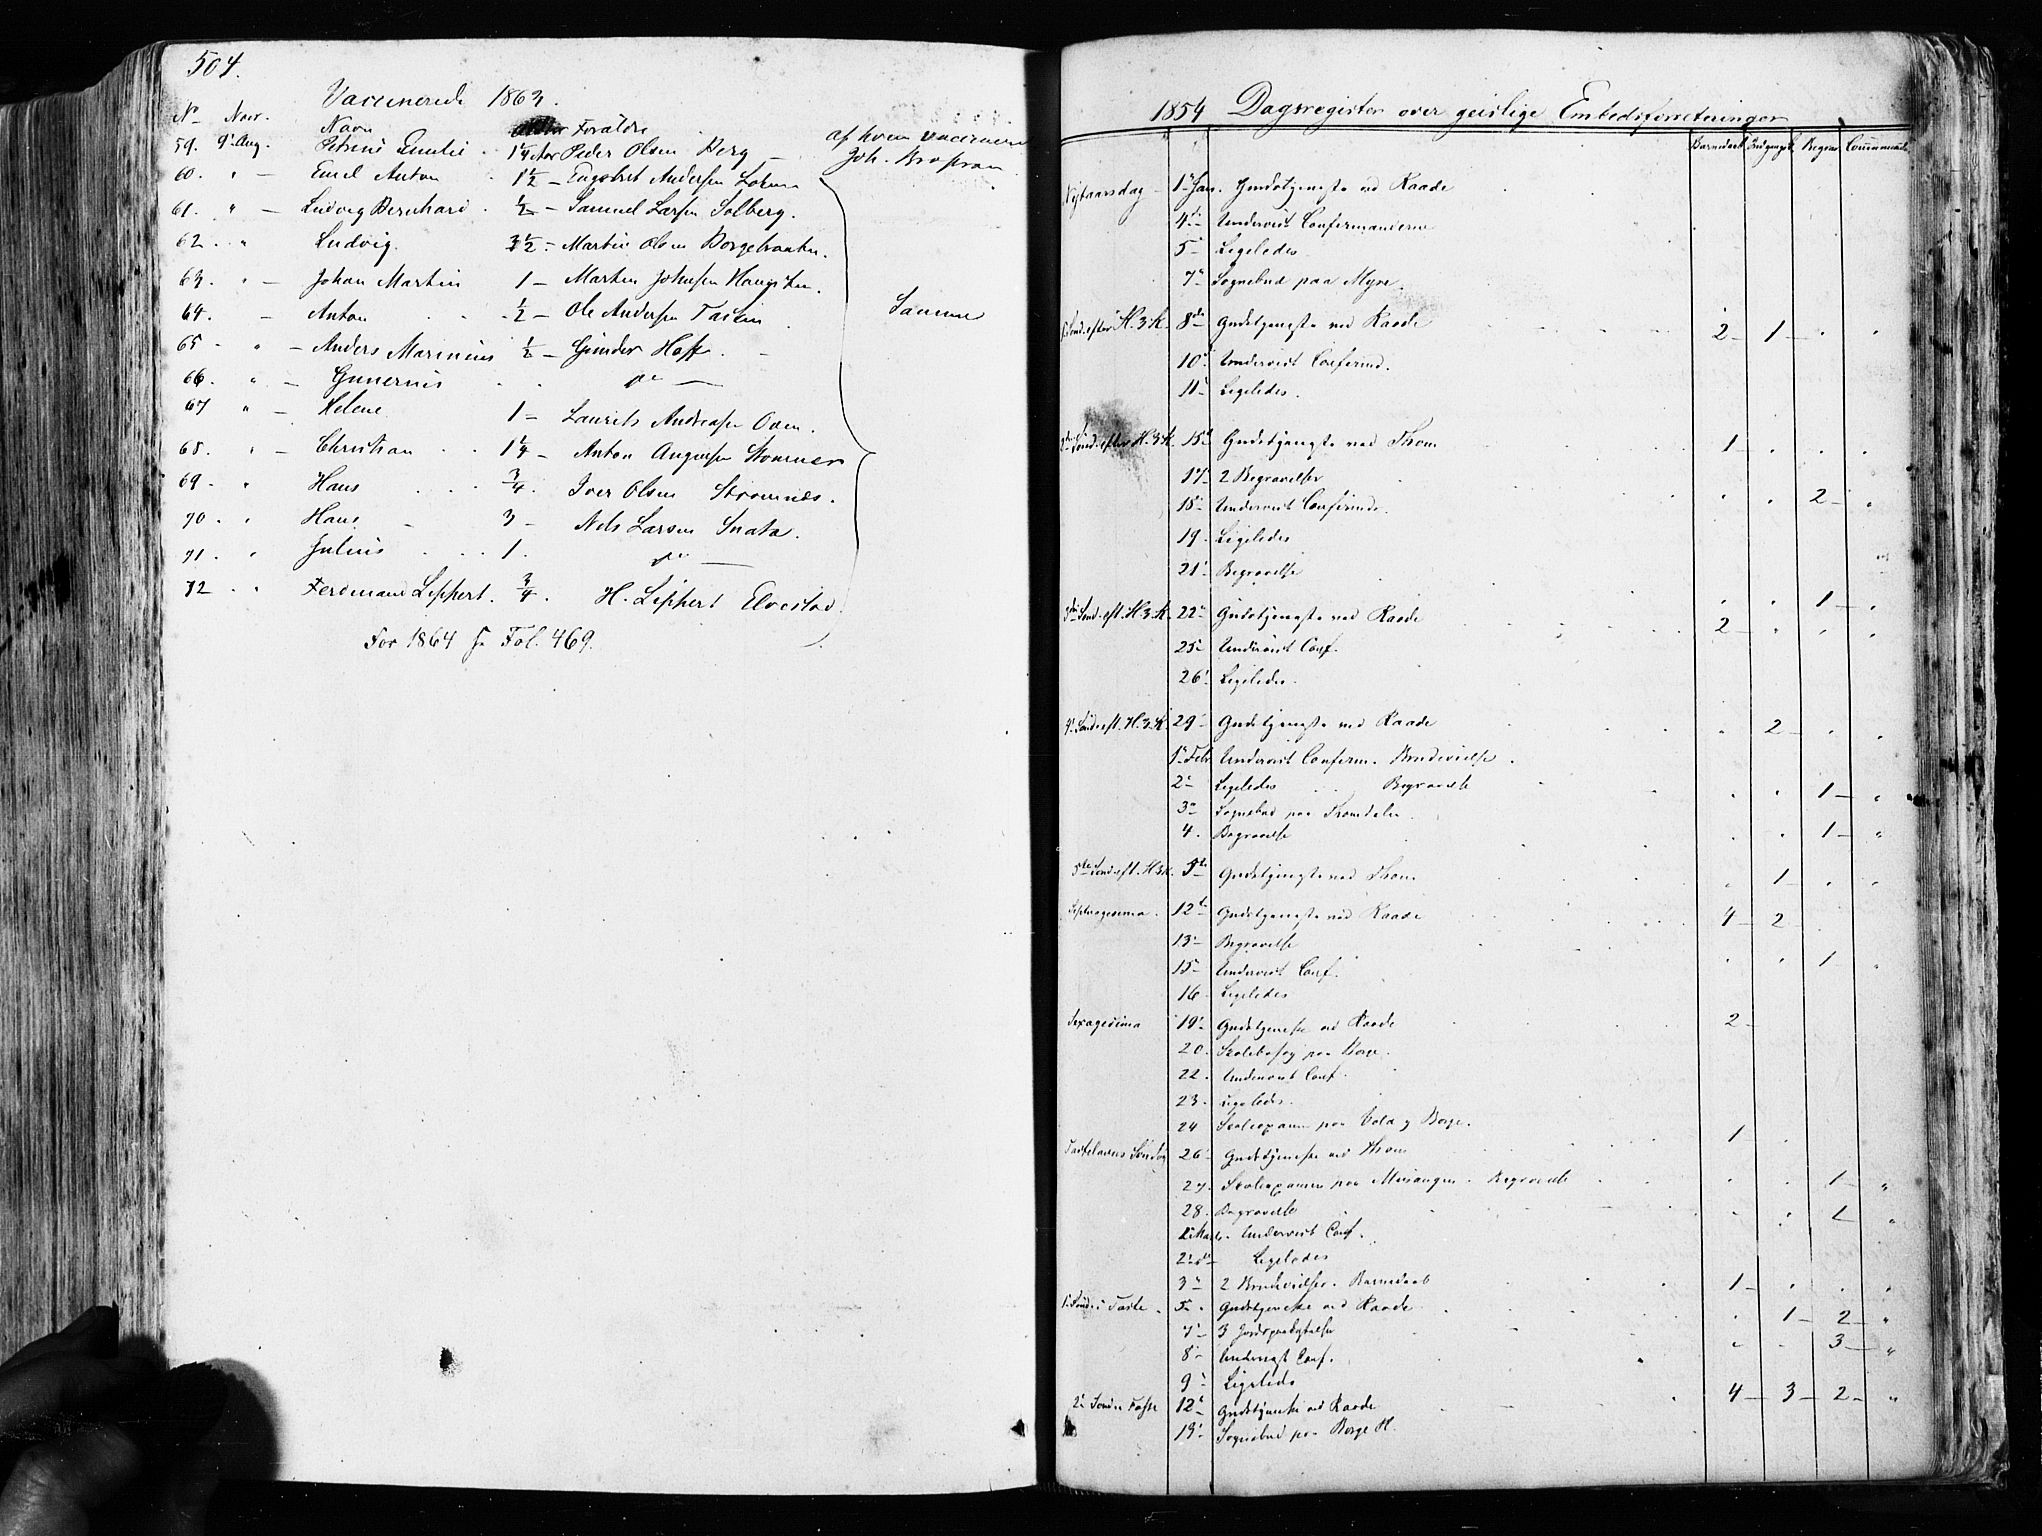 504.
Vaccinerede 1863.
No Navn Alder Forældre af hvem vaccineret
59. 9 Aug. Petrine Emilie 1 1/4 Peder Olsen Berg Joh.
60. " Emil Anton 1 1/2 Engebret Andersen
61. " Ludvig Bernhard 1/2 Samuel Larsen Solberg.
62. " Ludvig. 3 1/2 Martin Olsen Borgebraaten.
63. " Johan Martin 1 Martin Johnsen Haugsten.
64. Anton 1/2 Ole Andersen Taskin Samme
65 " Anders Marinius 1/2 Gunder Hoff.
66. " Gunerius do
67 " Helene 1 Laurits Andreasen Oven.
68. " Christian 1 1/4 Anton Stomner
69. " Hans 3/4. Iver Olsen Strømnes.
70. " Hans 3 Nels Larsen Snata.
71. " Julius 1. do
72 " Ferdinand Lippert. 3/4. H. Lippert Elvestad.
For 1864 se Fol. 469.
1854 Dagsregister over geistlige Embedsforretninger
Barnedaab Indgangsk. Begrav. Communicanter
Nytaarsdag 1 Jan. Gudstjeneste ved Raade
4 Underviist Confirmanderne
5 Ligeledes
7 Sognebud paa Myre.
1 Sønd. efter H. 3 K. 8de Gudstjeneste ved Raade 2 1
10 Underviist Confirmd.
11 Ligeledes.
2den Sønd. efter H. 3 K. 15de Gudstjeneste ved Thom 1
17 2 Begravelser
18 Underviist Confirmde. 2
19. Ligeledes
21 Begravelse
3die Sønd. eft. H. 3 K. 22 Gudstjeneste ved Raade 1
2
25 Underviist Conf.
26 Ligeledes.
4 Sønd. eft. H. 3 K. 29 Gudstjeneste ved Raade 2
1 Feb. Underviist Confirm. Brudevielse.
2 Ligeledes Begravelse 1
3 Sognebud paa Tromdalen
4. Begravelse 1
5te Sønd. eft. H. 3 K. 5te Gudstjeneste ved Thom. 1
Septuagesima. 12te Gudstjeneste ved Raade 4 2
13 Begravelse
15 Underviist Conf. 1
16 Ligeledes
Sexagesima 19 Gudstjeneste ved Raade 2
20. Skolebesøg paa Borge.
22. Underviist Conf.
23. Ligeledes.
24 Skoleexamen paa og Borge.
Fastelavns Søndag 26 Gudstjeneste ved Thom 1
27. Skoleexamen paa Missingen. Begravelse 1
28. Begravelse 1
1 Marts. Underviist Conf.
2 do Ligeledes
3 2 Brudevielser. Barnedaab 1
1 Sønd. i Faste. 5 Gudstjeneste ved Raade 1 2
7 3 Jordpaakastelser 3
8 Underviist Conf.
9 Ligeledes
2 Sønd. i Faste 12 Gudstjeneste ved Raade 4 3 2
19 Sognebud paa Borge